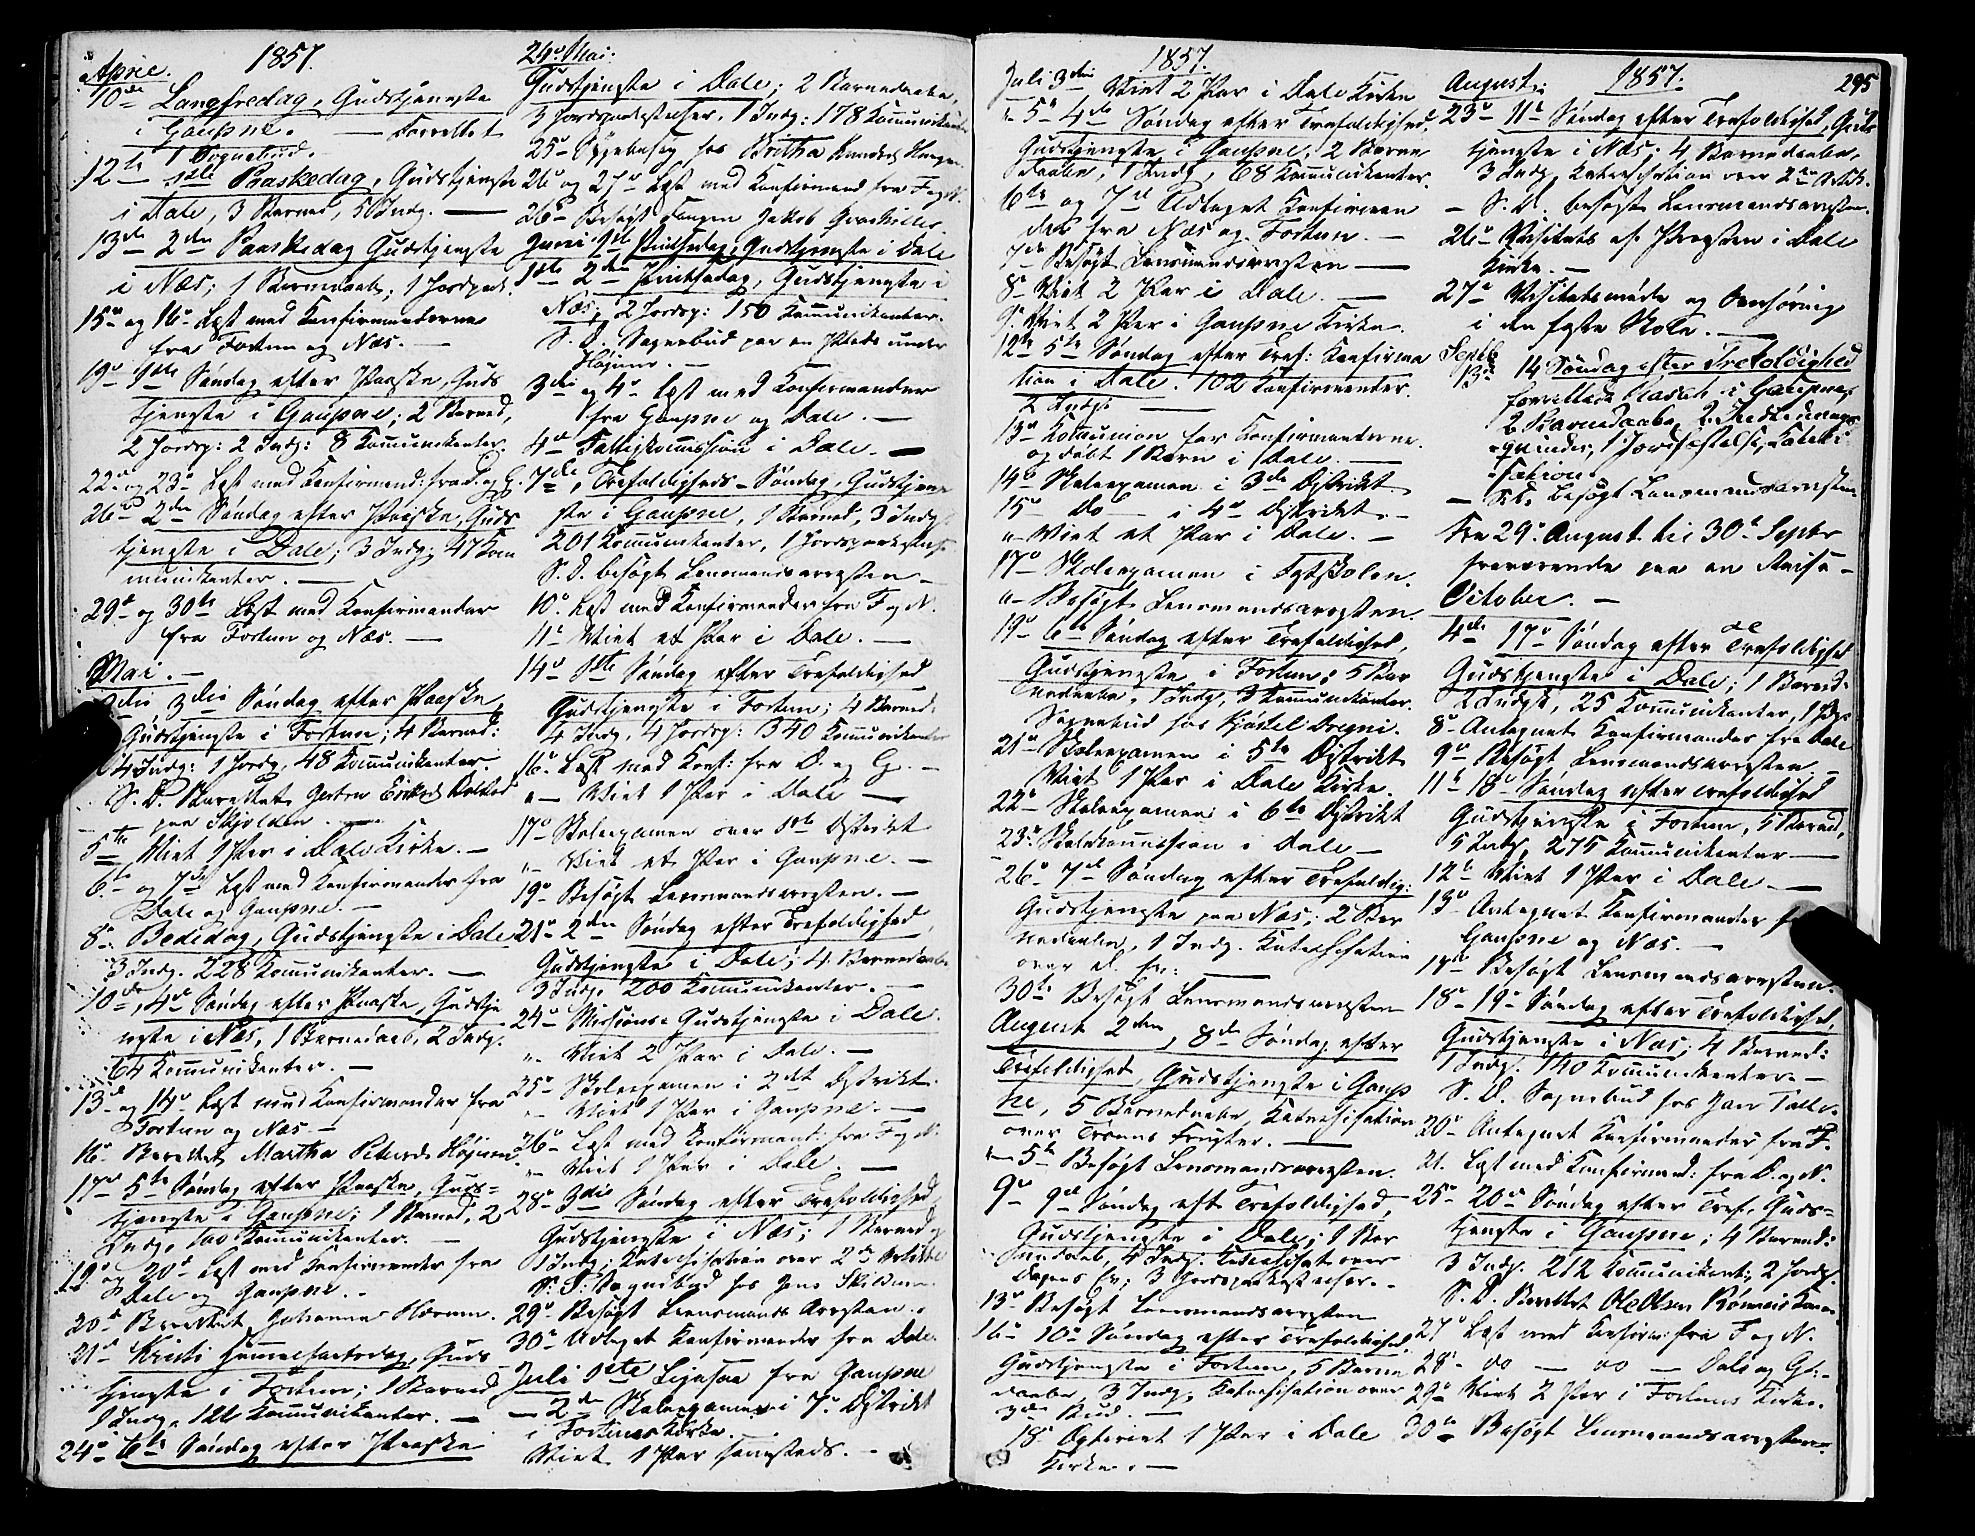 April. 1857.
10de Langfredag, Gudstjeneste
i Gaupne. — Forrettet
1 Sognebud.
12te 1ste Paaskedag, Gudstjeneste
i Dale, 3 Barned, 5 Indg. —
13de 2den Paaskedag Gudstjeneste
i Næs; 1 Barnedaab; 1 Jordpaak.
15de og 16de Læst med Konfirmanderne
fra Fortun og Næs. —
19de 1ste Søndag efter Paaske, Guds
tjeneste i Gaupne; 2 Barned,
2 Jordsp: 2 Indg: 8 Kommunikanter.
22de og 23de Læst med Konfirmand: fra D. og G.
26de 2den Søndag efter Paaske, Guds
tjeneste i Dale; 3 Indg; 47 Kom
munikanter. —
29de og 30te Læst med Konfirmander
fra Fortun og Næs. —
Mai. —
3die 3die Søndag efter Paaske,
Gudstjeneste i Fortun; 4 Barned:
4 Indg: 1 Jordp, 48 Kommunikanter.
S. D. Berettet
paa Skjolden. —
5te Viet 1 Par i Dale Kirke. —
6te og 7de Læst med Konfirmander fra
Dale og Gaupne. —
8de Bededag, Gudstjeneste i Dale
3 Indg. 228 Kommunikanter. —
10de, 4de Søndag efter Paaske, Gudstje
neste i Næs, 1 Barnedaab, 2 Indg.
64 Kommunikanter. —
13de og 14de Læst med Konfirmander fra
Fortun og Næs. —
16de Berettet Martha Pedersd. Høium.
17de 5te Søndag efter Paaske, Guds=
tjeneste i Gaupne; 1 Barned, 2
Indg. 100 Kommunikanter. —
19de og 20de Læst med Konfirmander fra
Dale og Gaupne. —
20de Berettet Johanna
21de Kristi Himmelfartsdag, Guds
tjeneste i Fortun; 1 Barned
1 Indg. Kommunikanter. —
24de 6te Søndag efter Paaske
24de Mai.
Gudstjeneste i Dale; 2 Barnedaabe,
3 Jordpaakastelser, 1 Indg: 178 Kommunikant
25de Sygebesøg hos Britha
26de og 27de Læst med Konfirmand fra F og N.
26de Besøgt Fangen Jakob
Juni 1ste Pintsedag, Gudstjeneste i Dale
1ste 2den Pintsedag, Gudstjeneste i
Næs, 2 Jordsp: 150 Kommunikanter.
S. D. Sognebud paa en Plads under
Høium. —
3die og 4de Læst med Konfirmander
fra Gaupne og Dale. —
4de Fattigkommission i Dale. —
7de, Trefoldigheds-Søndag, Gudstjene
ste i Gaupne, 1 Barned, 3 Indg.
201 Kommunikanter, 1 Jordspaakastelse
S. D. besøgt Lensmandsarresten —
10de Læst med Konfirmander fra F og N.
11te Viet et Par i Dale. —
14de 1ste Søndag efter Trefoldighed
Gudstjeneste i Fortun; 4 Barned.
4 Indg, 4 Jordsp: 340 Kommunikanter
16de Læst med Konf: fra D. og G. —
" — Viet 1 Par i Dale —
17de Skoleexamen over 1ste Distrikt
" — Viet et Par i Gaupne. —
19de Besøgt Lensmandsarresten. —
21de 2den Søndag efter Trefoldighed,
Gudstjeneste i Dale; 4 Barnedaabe
3 Indg. 200 Kommunikanter. —
24de Missions-Gudstjeneste i Dale.
" — Viet 2 Par i Dale. —
25de Skoleexamen i 2det Distrikt.
" — Viet 1 Par i Gaupne. —
26de Læst med Konfirmant: fra F og N.
" — Viet 1 Par i Dale. —
28de 3die Søndag efter Trefoldighed,
Gudstjeneste i Næs; 1 Barned
Indg; Katechisation over 2den Artikel
S. D. Sognebud hos Jens
29de Besøgt Lensmands Arresten.
30te Udtaget Konfirmander fra Dale.
Juli 1ste Ligesaa fra Gaupne
— 2den Skoleexamen i 7de Distrikt
i Fortuns Kirke.
Viet 1 Par sammesteds. —
1857.
Juli 3die Viet 2 Par i Dale Kirke
" 5te 4de Søndag efter Trefoldighed.
Gudstjeneste i Gaupne; 2 Barne
daabe, 1 Indg, 68 Kommunikanter.
6te og 7de Udtaget Konfirman
der fra Næs og Fortun. —
7de Besøgt Lensmandsarresten —
8de Viet 2 Par i Dale. —
9de Viet 2 Par i Gaupne Kirke.
12te 5te Søndag efter Tref: Konfirma
tion i Dale. 102 Konfirmander.
2 Indg: —
13de Kommunion for Konfirmanderne.
og døbt 1 Barn i Dale. —
14de Skoleexamen i 3die Distrikt.
15de Do — i 4de Distrikt. —
" — Viet et Par i Dale. —
17de Skoleexamen i Fastskolen.
" — Besøgt Lensmandsarresten.
19de 6te Søndag efter Trefoldighed,
Gudstjeneste i Fortun; 5 Bar
nedaabe, 1 Indg, 3 Kommunikanter.
Sognebud hos Kjostel Dregni.
21de Skoleexamen i 5te Distrikt
Viet 1 Par i Dale Kirke.
22de Skoleexamen i 6te Distrikt
23de Skolekommission i Dale —
26de 7de Søndag efter Trefoldig:
Gudstjeneste paa Næs; 2 Bar
nedaabe, 1 Indg. Katechisation
over
30te Besøgt Lensmandsarresten
August 2den, 8de Søndag efter
Trefoldighed, Gudstjeneste i Gaup
ne, 5 Barnedaabe, Katechisation
over Troens Frugter. —
— 5te Besøgt Lensmandsarresten.
9de 9de Søndag eft Trefoldighed,
Gudstjeneste i Dale; 1 Bar
nedaab, 4 Indg. Katechisat over
Dagens Ev; 3 Jordspaakastelser. —
13de Besøgt Lensmandsarresten
16de 10de Søndag efter Trefoldighed.
Gudstjeneste i Fortun, 5 Barne
daabe, 3 Indg, Katechisation over
3die Bud. —
18de Viet 1 Par i Dale
Kirke. —
August. 1857. 295
23de 11te Søndag efter Trefoldighed, Guds
tjeneste i Næs; 4 Barnedaabe,
3 Indg, Katechisation over 2den Artik.
— S. D. besøgt Lensmandsarresten.
26de Visitats af Provsten i Dale
Kirke. —
27de Visitatsmøde og Overhøring
i den faste Skole. —
Septb
13de 14 Søndag efter Trefoldighed
forrettede Rasch i Gaupne
2 Barnedaabe, 2 Indlednings
qvinder, 1 Jordfæstelse, Kateki
sation.
— S.D. besøgt Lensmandsarresten
Fra 29de August til 30te Septbr
fraværende paa en Reise —
October. —
4de 17de Søndag efter Trefoldighed
Gudstjeneste i Dale; 1 Barned:
2 Indgk, 25 Kommunikanter,
8de Antegnet Konfirmander fra Dale
9de Besøgt Lensmandsarresten. —
11te 18de Søndag efter Trefoldighed
Gudstjeneste i Fortun, 5 Barned,
5 Indg, 275 Kommunikanter —
12te Viet 1 Par i Dale. —
13de Antegnet Konfirmander fra
Gaupne og Næs. —
17de Besøgt Lensmandsarresten.
18de 19de Søndag efter Trefoldighed,
Gudstjeneste i Næs; 4 Barned:
1 Indg. 140 Kommunikanter. —
S. D. Sognebud hos
20de Antegnet Konfirmander fra F.
21. Læst med Konfirmand: fra D. og N.
25de 20de Søndag efter Tref. Guds=
tjeneste i Gaupne; 4 Barned:
3 Indg. 212 Kommunikant:, 2 Jordp.
S. D. Berettet Ole Olsen
27de Læst med Konfirm: fra F og N.
28de do — do — Dale og G: —
29de Viet 2 Par i Fortuns Kirke.
30te Besøgt Lensmandsarresten